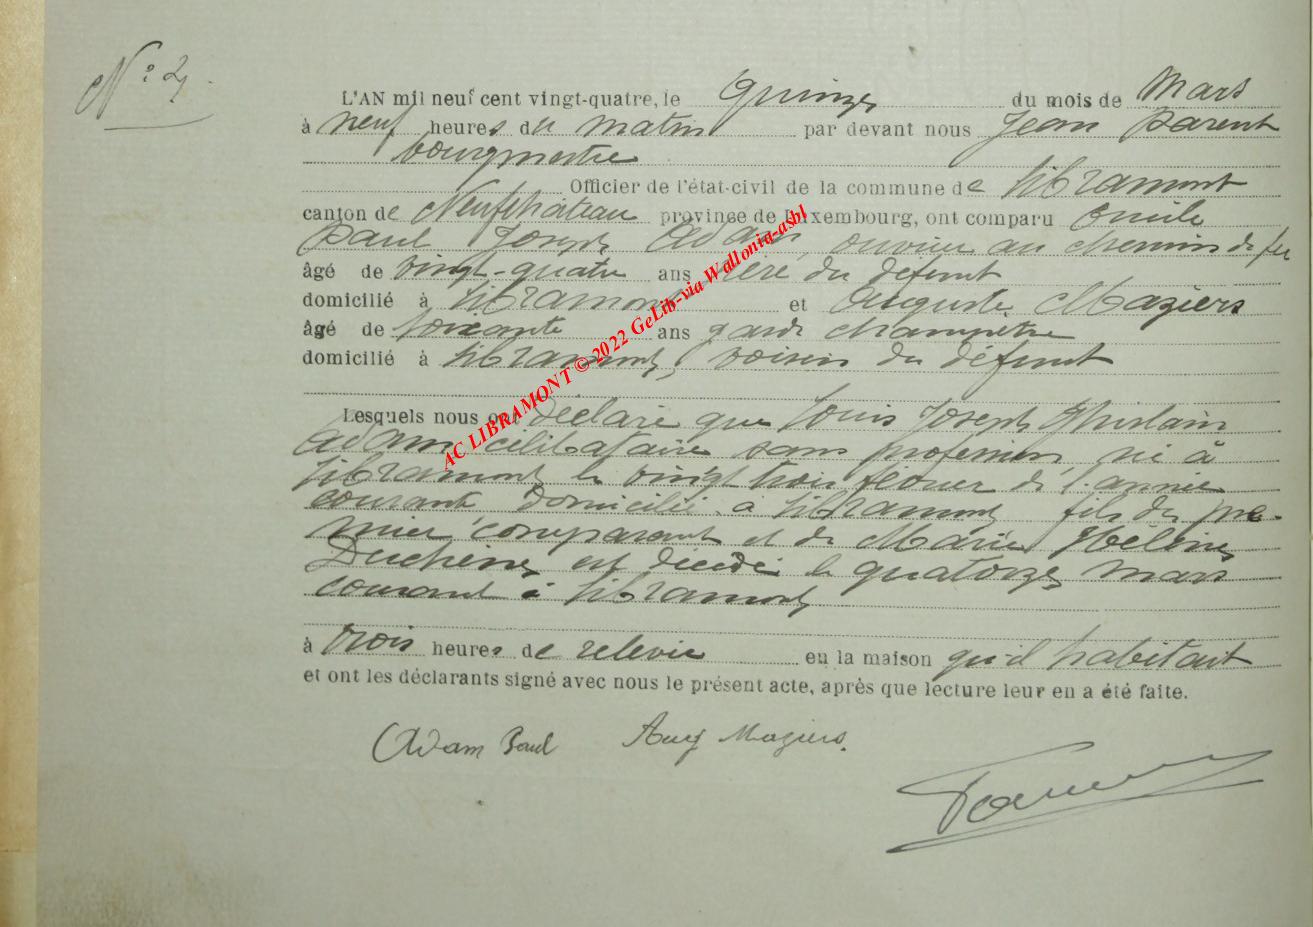 N° 4.
L'AN mil neuf cent vingt-quatre, le quinze du mois de Mars
à neuf heures du matin par devant nous Jean Parent
bourgmestre
Officier de l'état-civil de la commune de Libramont
canton de Neufchâteau province de Luxembourg, ont comparu Emile
Paul Joseph Adam, ouvrier au chemin de fer
âgé de vingt-quatre ans père du défunt
domicilié à Libramont et Auguste Maziers
âgé de soixante ans garde champêtre
domicilié à Libramont, voisin du défunt
Lesquels nous ont déclaré que Louis Joseph Ghislain
Adam célibataire sans profession né à
Libramont le vingt trois février de l'année
courante domicilié à Libramont fils du pre-
mier comparant et de Marie Hélène
Duchêne est décédé le quatorze mars
courant à Libramont
à trois heures de relevée en la maison qu'il habitait
et ont les déclarants signé avec nous le présent acte, après que lecture leur en a été faite.
Adam Paul Aug Maziers.
Parent
AC LIBRAMONT © 2022 GeLib-via Wallonia-asbl